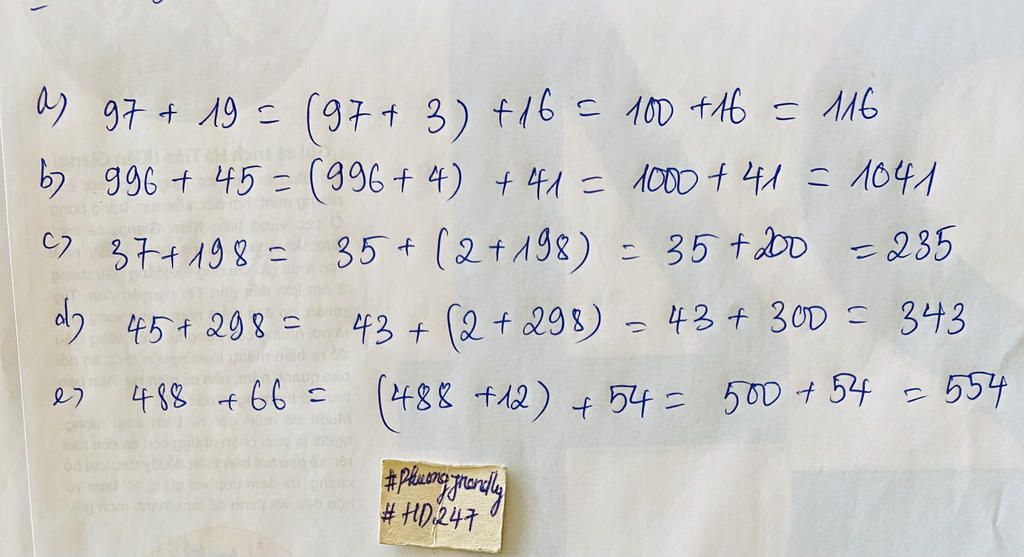 a) 97 + 19 = (97 + 3) + 16 = 100 + 16 = 116
b) 996 + 45 = (996 + 4) + 41 = 1000 + 41 = 1041
c) 37 + 198 = 35 + (2 + 198) = 35 + 200 = 235
d) 45 + 298 = 43 + (2 + 298) = 43 + 300 = 343
e) 488 + 66 = (488 + 12) + 54 = 500 + 54 = 554
# HD247